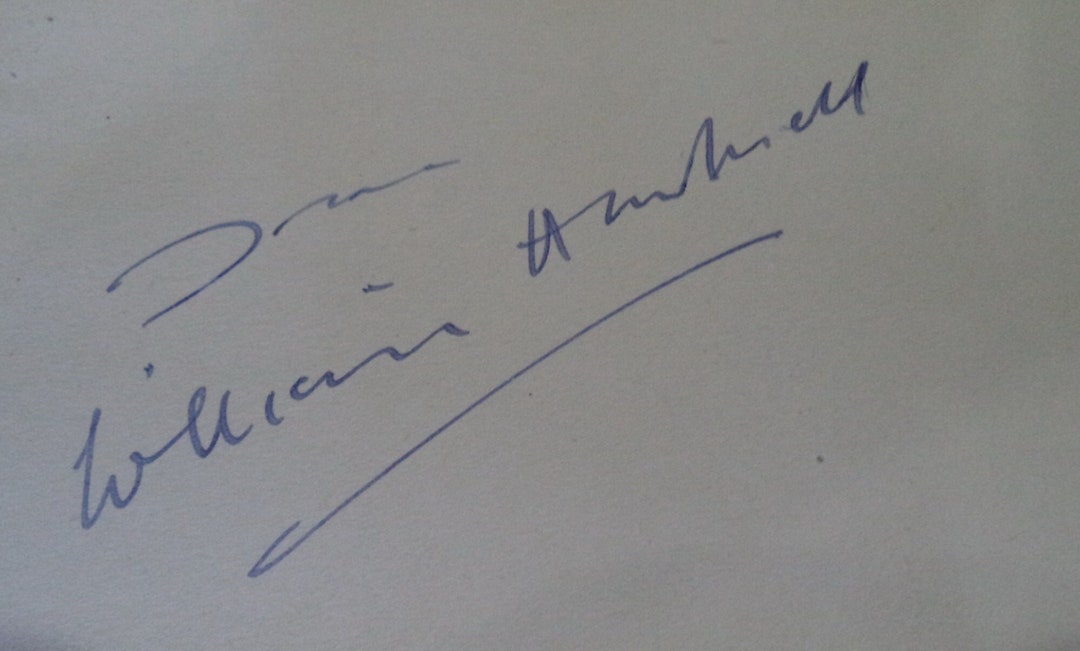 From
William Hartnell